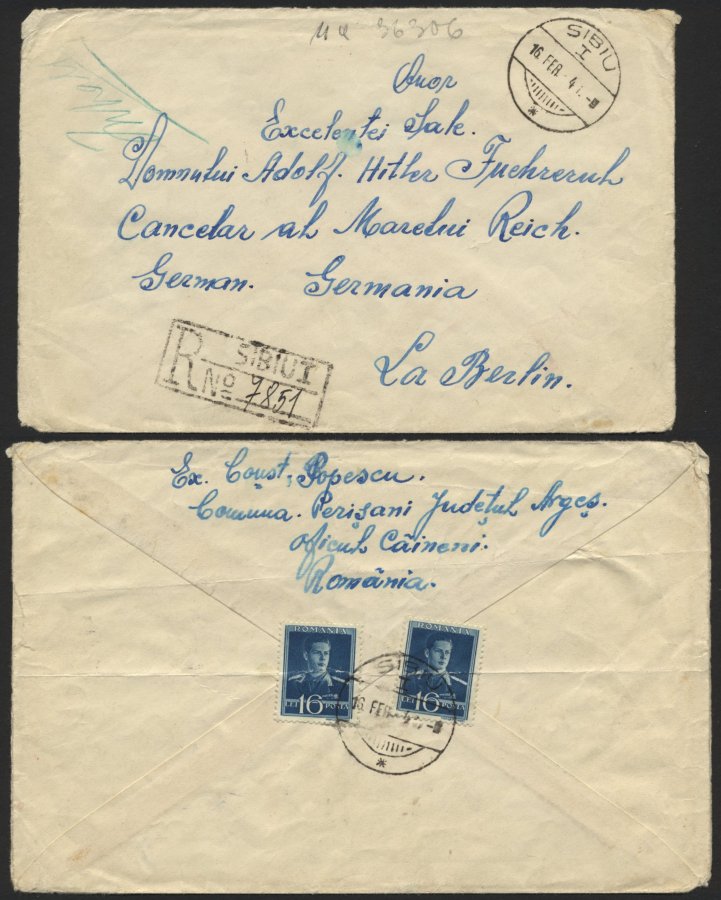 36306
SIBIU
I
16 FEB. 41
Onor
Excelentei Sale.
Domnului Adolf. Hitler Fuehrerul
Cancelar al Marelui Reich.
German. Germania
R SIBIU I
No 7851
La Berlin.
Ex. Const. Popescu.
Comuna. Perișani Județul Argeș.
Oficul Câineni.
România.
ROMANIA
16
LEI POSTA
ROMANIA
16
LEI POSTA
SIBIU
I
16 FEB. 4